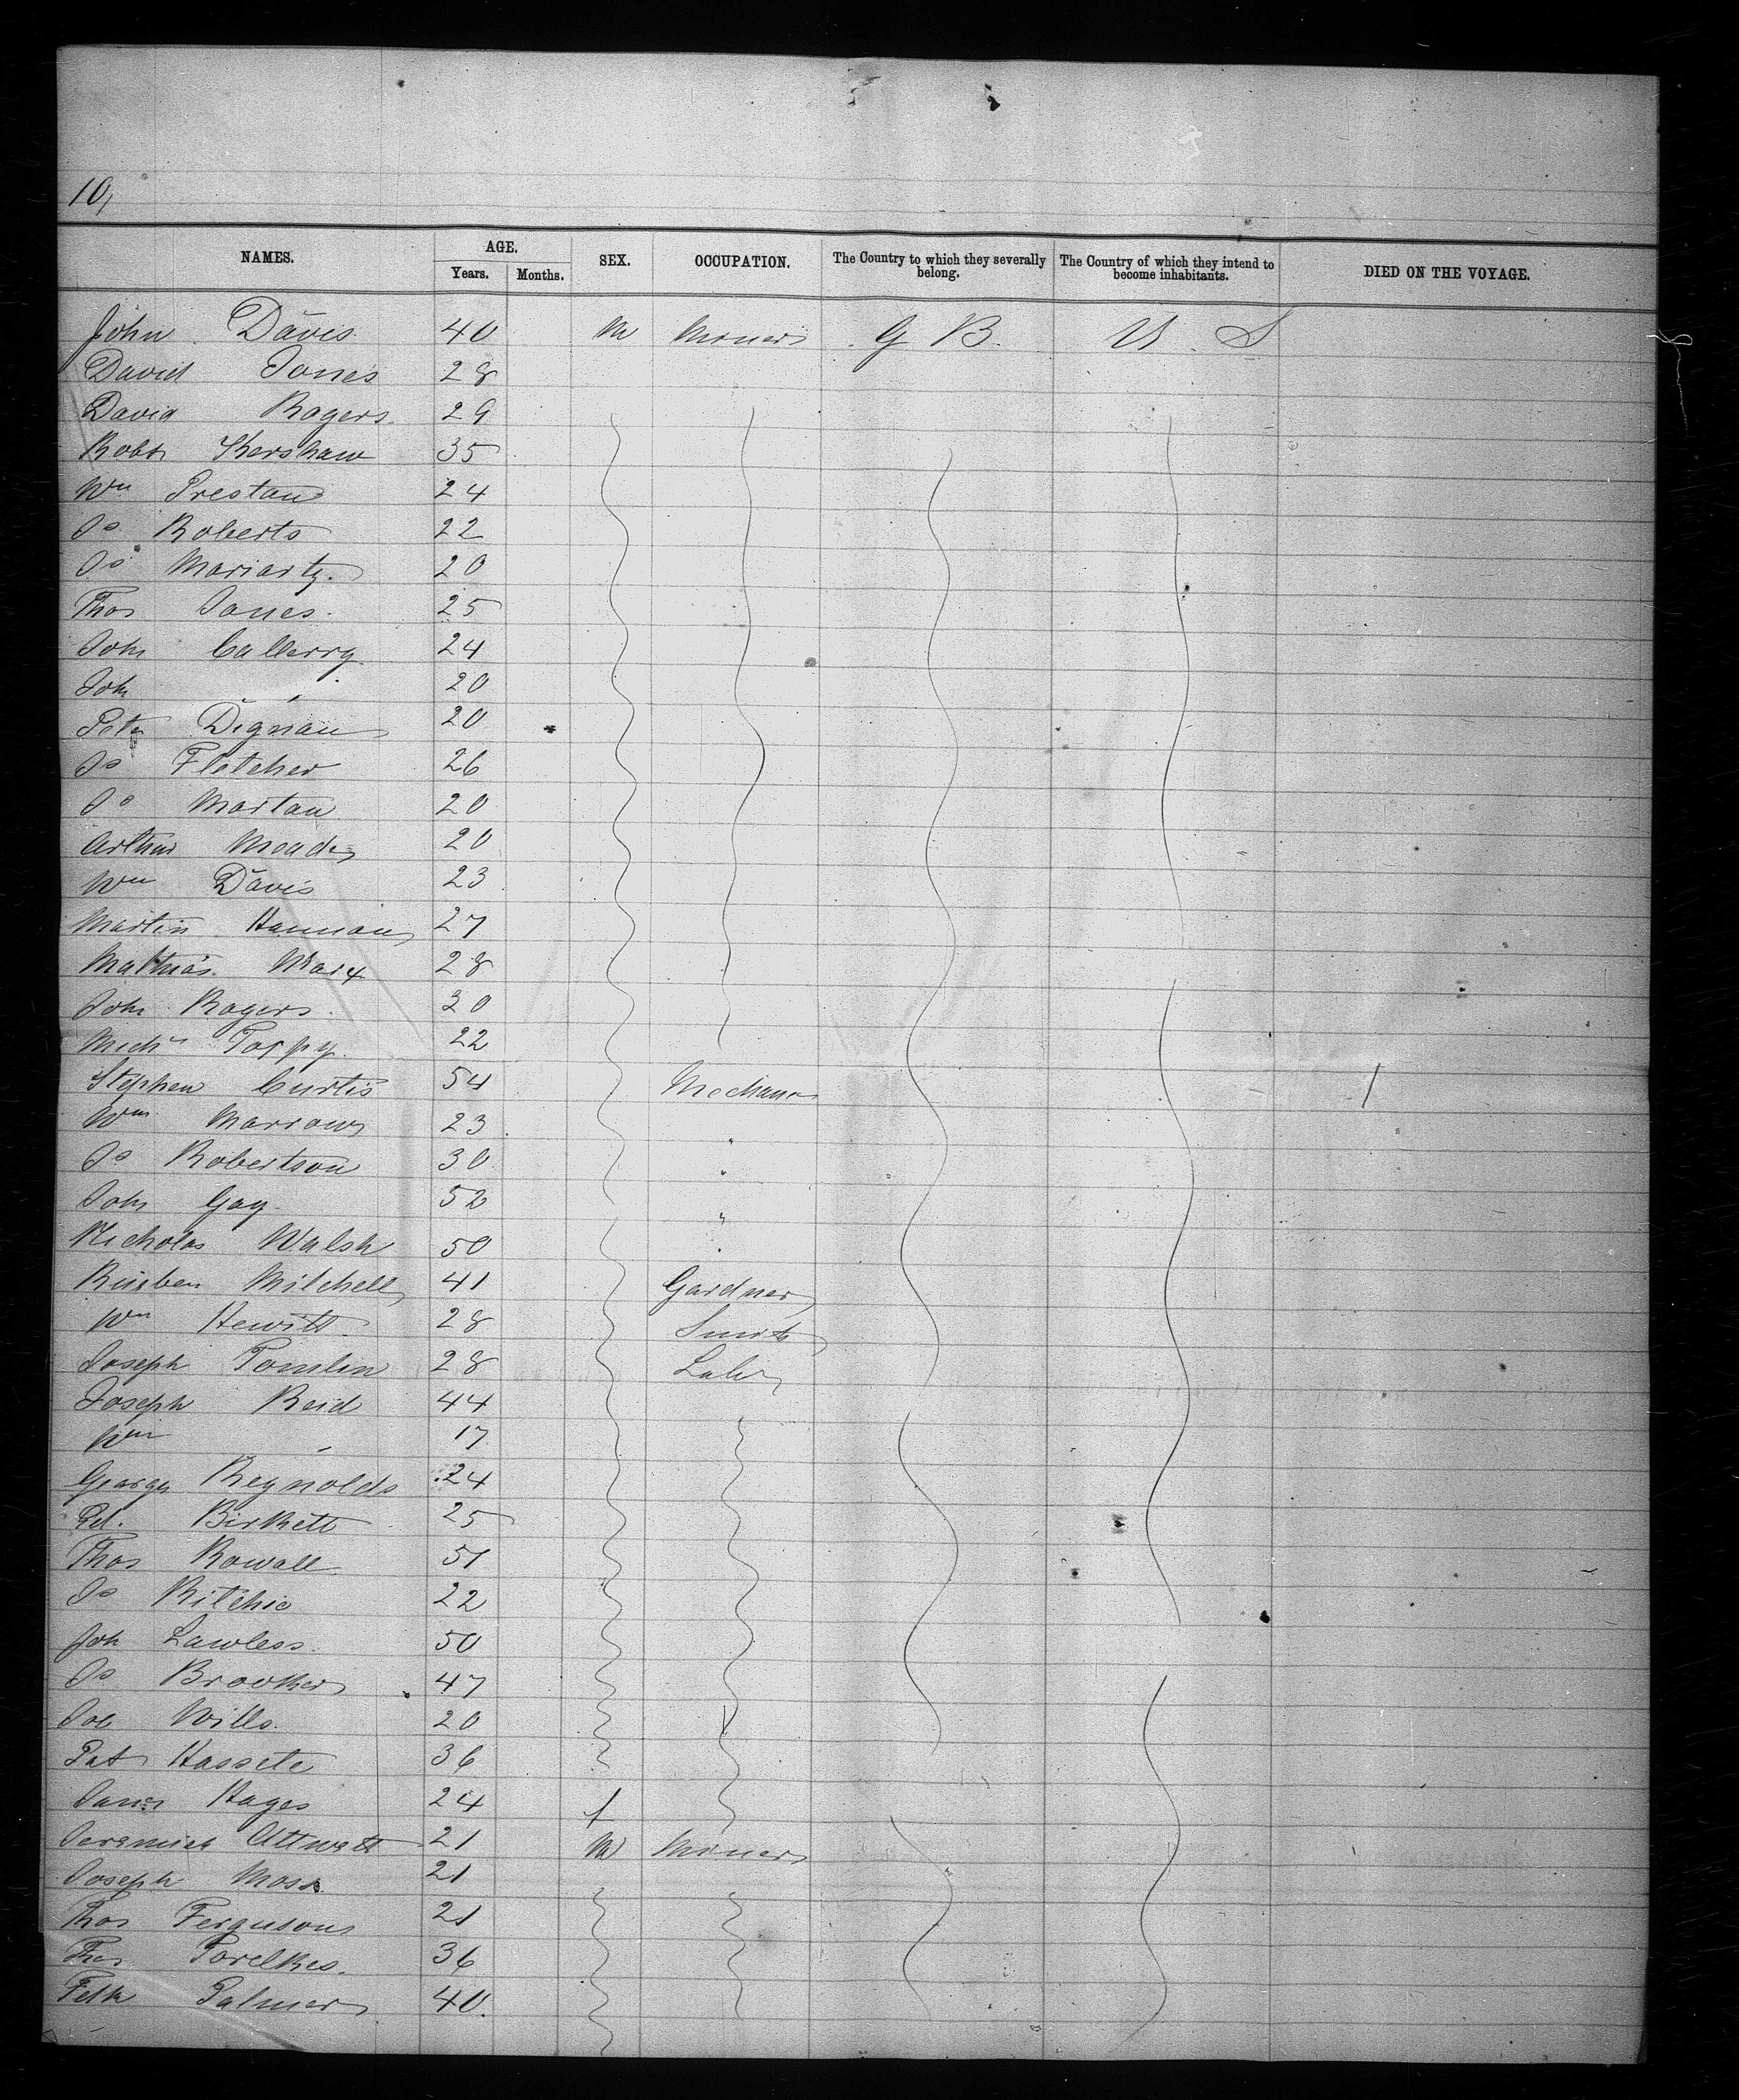 10,
NAMES. AGE. Years. Months. SEX. OCCUPATION. The Country to which they severally belong. The Country of which they intend to become inhabitants. DIED ON THE VOYAGE.
John Davis 40 M Miners G B. U S
David Jones 28
David Rogers 29
Robt Kershaw 35
Wm Preston 24
Js Roberts 22
Js Moriarty. 20
Thos Jones. 25
John Callerry 24
John " 20
Peter Dignan 20
Js Fletcher 26
Js Martan 20
Arthur Meade 20
Wm Davis 23
Martin Hannan 27
Mathias 28
John Rogers. 30
Michl 22
Stephen Curtis 54 Mechanic /
Wm Marrow 23 "
Js Robertson 30 "
John Gay 52 "
Nicholas Walsh 50 "
Rueben Mitchell 41 Gardner
Wm Hewitt 28 Smith
Joseph Tomlin 28 Labr
Joseph Reid 44
Wm " 17
George Reynolds 24
Ed. Birkett 25
Thos Rowall 51
Js Ritchie 22
Joh Lawless. 50
Js Brooker 47
Job Wills. 20
Pat Hassete 36
Hayes 24 f
Jeremiah Attwatt 21 M Miners
Joseph Moss. 21
Thos Ferguson 21
Thos 36
Palmer 40.